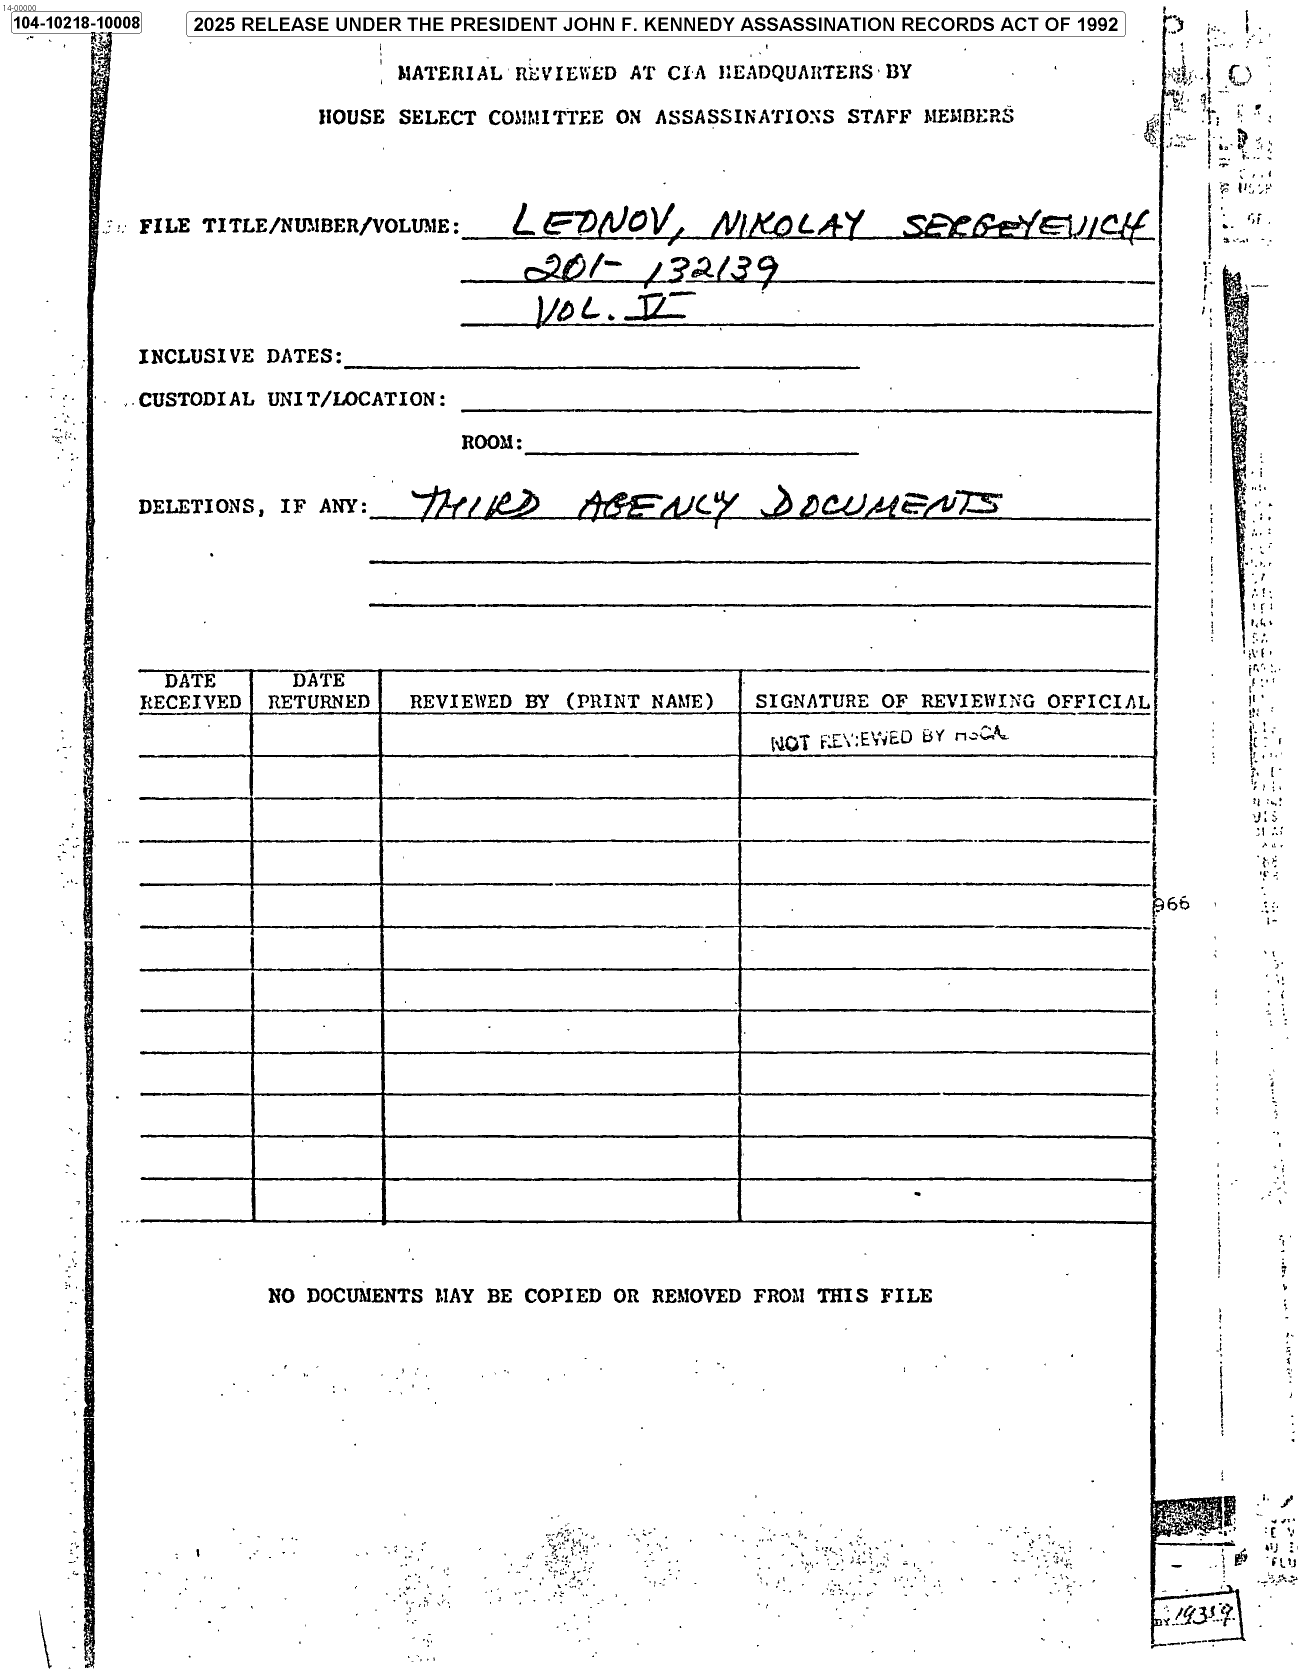 14-00000
104-10218-10008
2025 RELEASE UNDER THE PRESIDENT JOHN F. KENNEDY ASSASSINATION RECORDS ACT OF 1992
MATERIAL REVIEWED AT CIA HEADQUARTERS BY
HOUSE SELECT COMMITTEE ON ASSASSINATIONS STAFF MEMBERS
FILE TITLE/NUMBER/VOLUME: LEDNOV, NIKOLAY SERGEYEVICH
201- 132139
VOL. IV
INCLUSIVE DATES:
CUSTODIAL UNIT/LOCATION:
ROOM:
DELETIONS, IF ANY: THIRD AGENCY DOCUMENTS
DATE RECEIVED
DATE RETURNED
REVIEWED BY (PRINT NAME)
SIGNATURE OF REVIEWING OFFICIAL
NOT REVIEWED BY HSCA
966
NO DOCUMENTS MAY BE COPIED OR REMOVED FROM THIS FILE